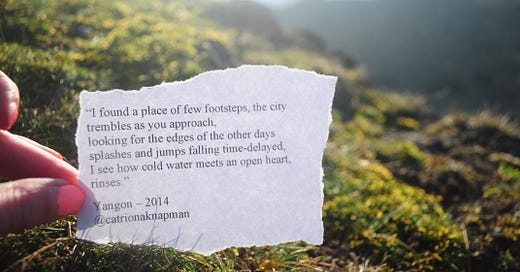 “I found a place of few footsteps, the city
trembles as you approach,
looking for the edges of the other days
splashes and jumps falling time-delayed,
I see how cold water meets an open heart,
rinses.”
Yangon – 2014
@catrionaknapman